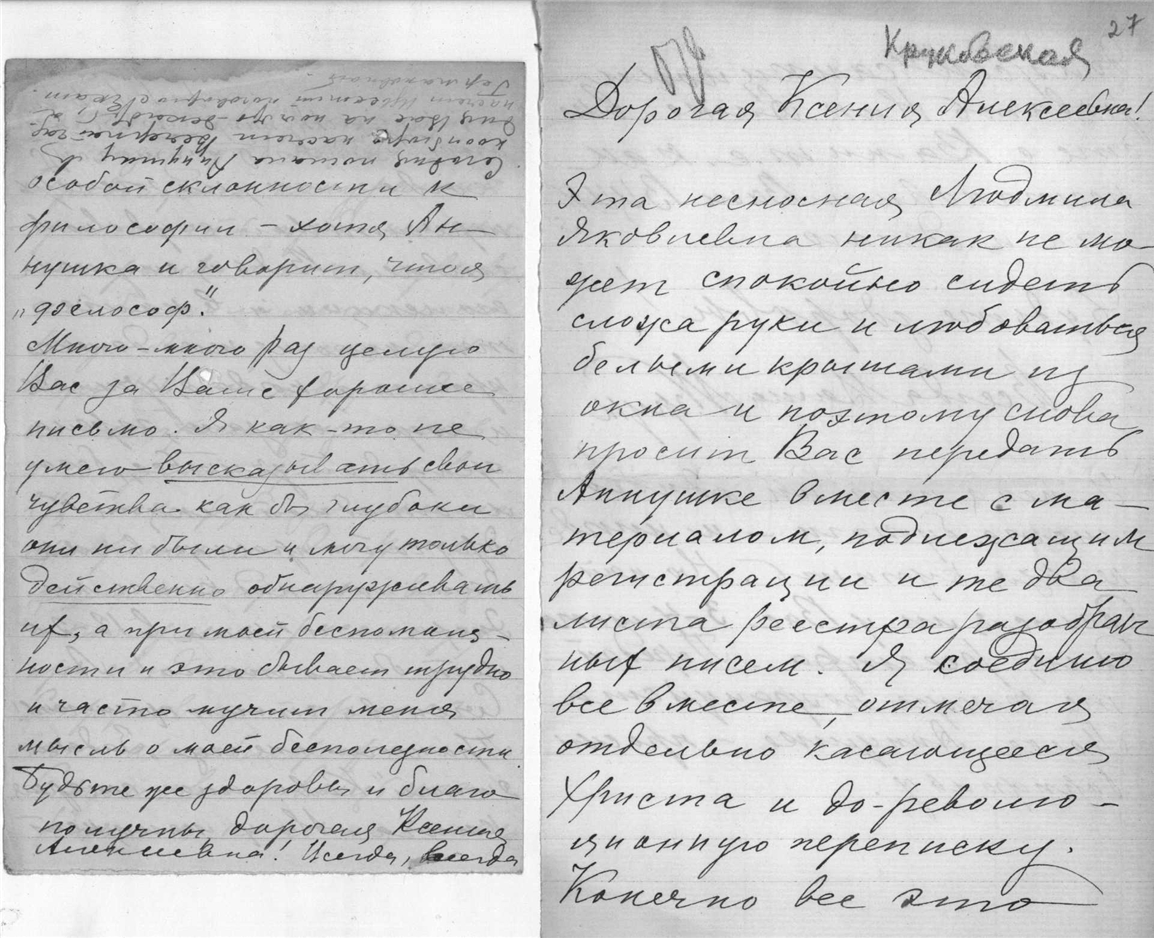 особой склонности к
философии – хотя Ан–
нушка и говорит, что я
„философ“.
Много–много раз целую
Вас за Ваше хорошее
письмо. Я как–то не
умею высказывать свои
чувства как бы глубоки
они ни были и могу только
действенно обнаруживать
их, а при моей беспомощ–
ности и это бывает трудно
и часто мучит меня
мысль о моей бесполезности.
Будьте же здоровы и благо
получны, дорогая Ксения
Алексеевна! Всегда, всегда
27
Круковская
Дорогая Ксения Алексеевна!
Эта несносная Людмила
Яковлевна никак не мо–
жет спокойно сидеть
сложа руки и любоваться
белыми крышами из
окна и поэтому снова
просит Вас передать
Аннушке вместе с ма–
териалом, подлежащим
регистрации и те два
листа реестра разобран
ных писем. Я соединю
все вместе, отмечая
отдельно касающееся
Христа и до–револю–
ционную переписку.
Конечно все это